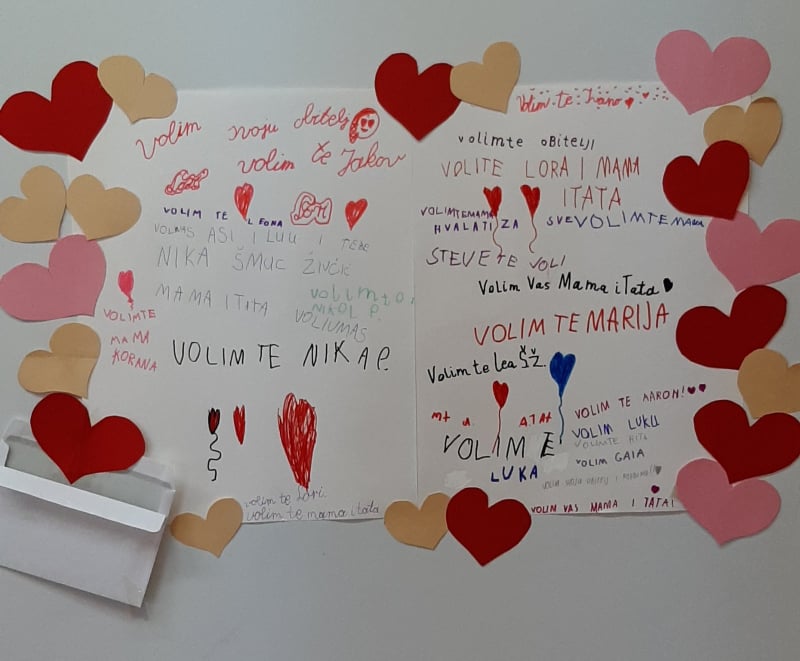 Volim svoju obitelj
volim te Jakov
VOLIM TE LEONA
VOLIM VAS ASI I LULI I TEBE
NIKA ŠMUC ŽIVČIĆ
MAMA I TATA
volimto,
NIKOL P.
VOLIUMAS
VOLIMTE
MAMA
KORANA
VOLIM TE NIKA P.
volim te Lori.
volim te mama i tata
Volim te Ivano
volimte oBitelJI
VOLITE LORA I MAMA
ITATA
VOLIMTEMAMA
HVALATI ZA SVEVOLIMTEMAMA
STEVE TE VOLI
Volim Vas Mama i Tata
VOLIM TE MARIJA
Volim te lea ŠŽ.
VOLIM TE AARON!
VOLIM LUKU
VOLIMTE RITA
VOLIM GAIA
VOLIM E
LUKA
VOLIM VAS MAMA I TATA!